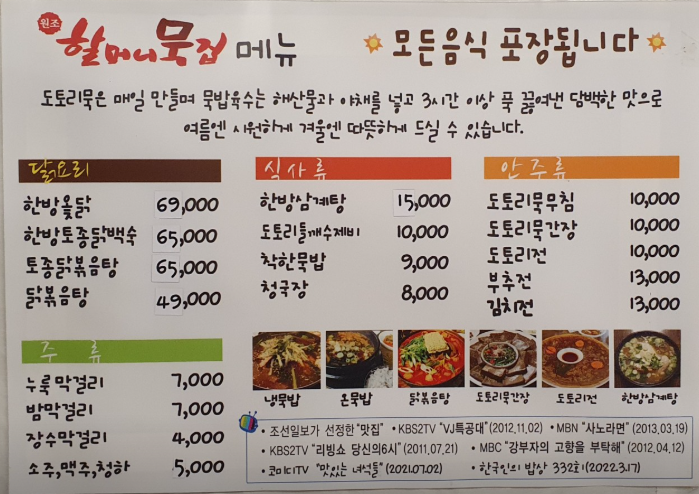 원조 할머니묵집 메뉴
모든음식 포장됩니다
도토리묵은 매일 만들며 묵밥육수는 해산물과 야채를 넣고 3시간 이상 푹 끓여낸 담백한 맛으로
여름엔 시원하게 겨울엔 따뜻하게 드실 수 있습니다.
닭요리
한방옻닭 69,000
한방토종닭백숙 65,000
토종닭볶음탕 65,000
닭볶음탕 49,000
주 류
누룩막걸리 7,000
밤막걸리 7,000
장수막걸리 4,000
소주,맥주,청하 5,000
식 사 류
한방삼계탕 15,000
도토리들깨수제비 10,000
착한묵밥 9,000
청국장 8,000
안 주 류
도토리묵무침 10,000
도토리묵간장 10,000
도토리전 10,000
부추전 13,000
김치전 13,000
냉묵밥 온묵밥 닭볶음탕 도토리묵간장 도토리전 한방삼계탕
• 조선일보가 선정한 "맛집" • KBS2TV "VJ특공대"(2012.11.02) • MBN "사노라면"(2013.03.19)
• KBS2TV "리빙쇼 당신의6시"(2011.07.21) • MBC "강부자의 고향을 부탁해"(2012.04.12)
• 코미디TV "맛있는 녀석들"(2021.07.02) • 한국인의 밥상 332회(2022.3.17)